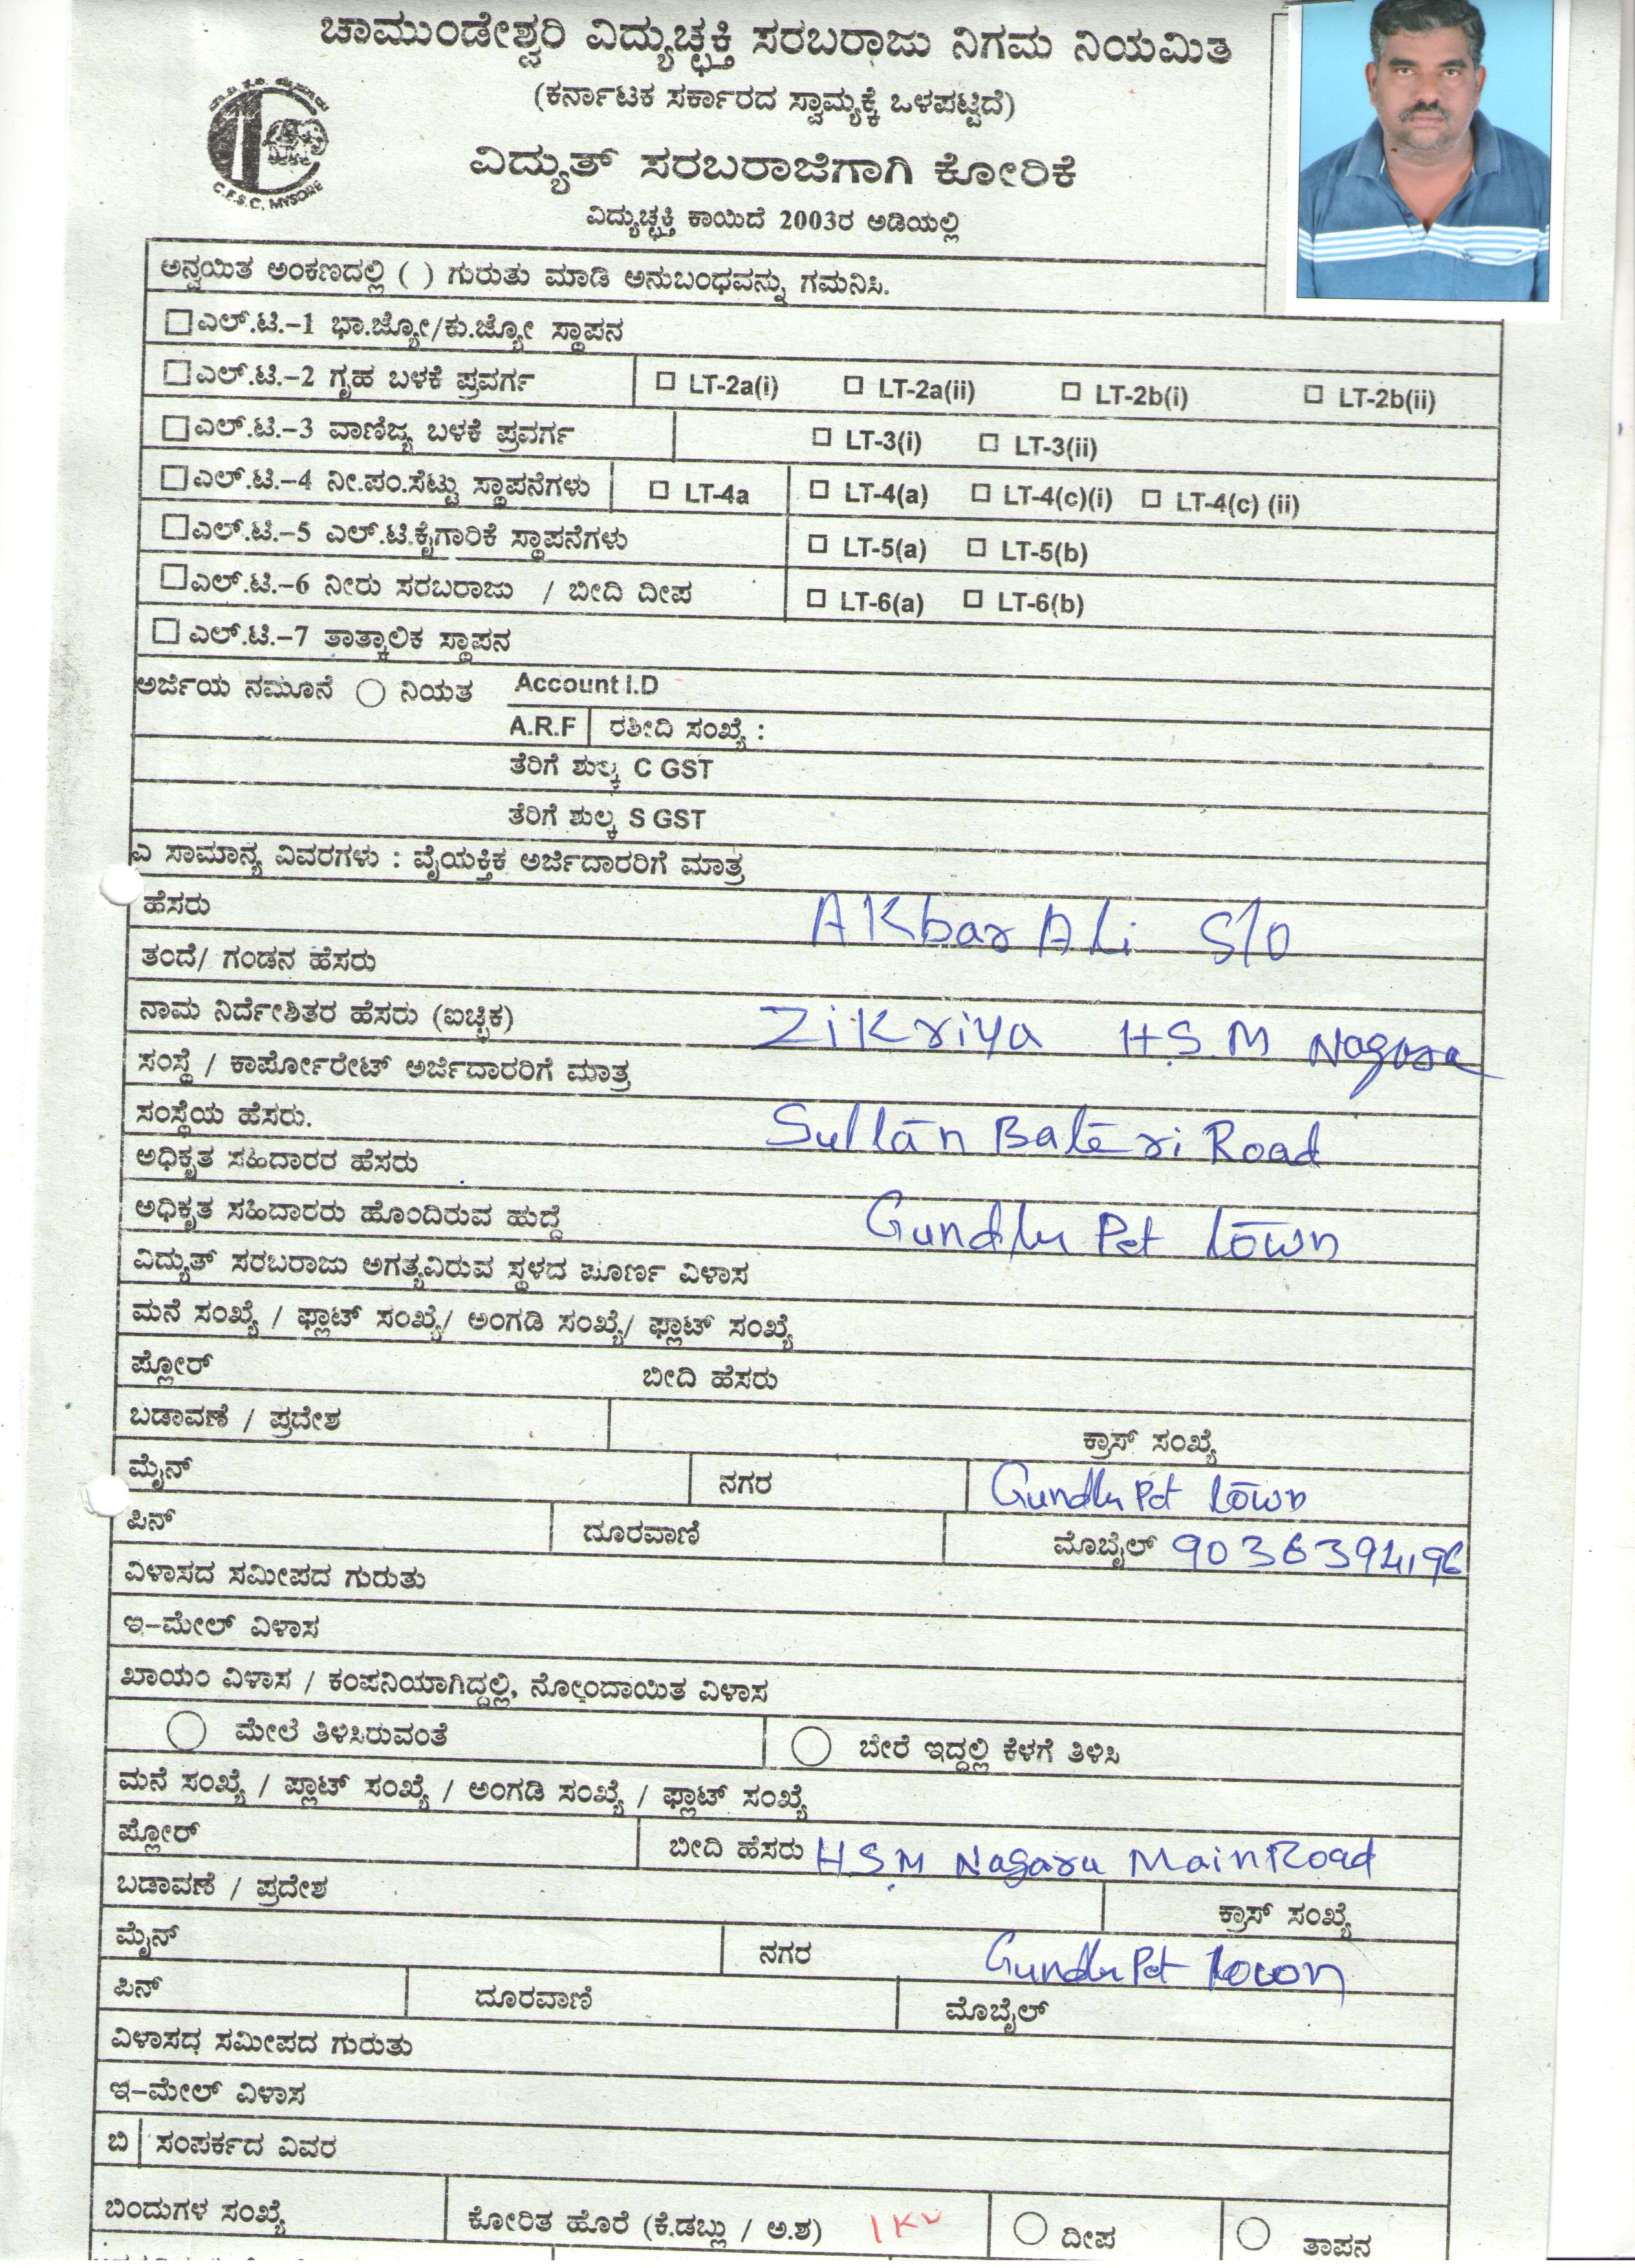 ಚಾಮುಂಡೇಶ್ವರಿ ವಿದ್ಯುಚ್ಛಕ್ತಿ ಸರಬರಾಜು ನಿಗಮ ನಿಯಮಿತ
(ಕರ್ನಾಟಕ ಸರ್ಕಾರದ ಸ್ವಾಮ್ಯಕ್ಕೆ ಒಳಪಟ್ಟಿದೆ)
C.E.S.C, MYSORE
ವಿದ್ಯುತ್ ಸರಬರಾಜಿಗಾಗಿ ಕೋರಿಕೆ
ವಿದ್ಯುಚ್ಛಕ್ತಿ ಕಾಯಿದೆ 2003ರ ಅಡಿಯಲ್ಲಿ
ಅನ್ವಯಿತ ಅಂಕಣದಲ್ಲಿ ( ) ಗುರುತು ಮಾಡಿ ಅನುಬಂಧವನ್ನು ಗಮನಿಸಿ.
☐ಎಲ್.ಟಿ.–1 ಭಾ.ಜ್ಯೋ/ಕು.ಜ್ಯೋ ಸ್ಥಾಪನ
☐ಎಲ್.ಟಿ.–2 ಗೃಹ ಬಳಕೆ ಪ್ರವರ್ಗ ☐ LT-2a(i) ☐ LT-2a(ii) ☐ LT-2b(i) ☐ LT-2b(ii)
☐ಎಲ್.ಟಿ.–3 ವಾಣಿಜ್ಯ ಬಳಕೆ ಪ್ರವರ್ಗ ☐ LT-3(i) ☐ LT-3(ii)
☐ಎಲ್.ಟಿ.–4 ನೀ.ಪಂ.ಸೆಟ್ಟು ಸ್ಥಾಪನೆಗಳು ☐ LT-4a ☐ LT-4(a) ☐ LT-4(c)(i) ☐ LT-4(c) (ii)
☐ಎಲ್.ಟಿ.–5 ಎಲ್.ಟಿ.ಕೈಗಾರಿಕೆ ಸ್ಥಾಪನೆಗಳು ☐ LT-5(a) ☐ LT-5(b)
☐ಎಲ್.ಟಿ.–6 ನೀರು ಸರಬರಾಜು / ಬೀದಿ ದೀಪ ☐ LT-6(a) ☐ LT-6(b)
☐ ಎಲ್.ಟಿ.–7 ತಾತ್ಕಾಲಿಕ ಸ್ಥಾಪನ
ಅರ್ಜಿಯ ನಮೂನೆ ○ ನಿಯತ Account I.D
A.R.F ರಶೀದಿ ಸಂಖ್ಯೆ :
ತೆರಿಗೆ ಶುಲ್ಕ C GST
ತೆರಿಗೆ ಶುಲ್ಕ S GST
ಎ ಸಾಮಾನ್ಯ ವಿವರಗಳು : ವೈಯಕ್ತಿಕ ಅರ್ಜಿದಾರರಿಗೆ ಮಾತ್ರ
ಹೆಸರು AKbar Ali S/o
ತಂದೆ/ ಗಂಡನ ಹೆಸರು
ನಾಮ ನಿರ್ದೇಶಿತರ ಹೆಸರು (ಐಚ್ಛಿಕ) Zikriya H.S.M Nagara
ಸಂಸ್ಥೆ / ಕಾರ್ಪೋರೇಟ್ ಅರ್ಜಿದಾರರಿಗೆ ಮಾತ್ರ
ಸಂಸ್ಥೆಯ ಹೆಸರು. Sultan Bateri Road
ಅಧಿಕೃತ ಸಹಿದಾರರ ಹೆಸರು
ಅಧಿಕೃತ ಸಹಿದಾರರು ಹೊಂದಿರುವ ಹುದ್ದೆ Gundlu Pet town
ವಿದ್ಯುತ್ ಸರಬರಾಜು ಅಗತ್ಯವಿರುವ ಸ್ಥಳದ ಪೂರ್ಣ ವಿಳಾಸ
ಮನೆ ಸಂಖ್ಯೆ / ಫ್ಲಾಟ್ ಸಂಖ್ಯೆ/ ಅಂಗಡಿ ಸಂಖ್ಯೆ/ ಫ್ಲಾಟ್ ಸಂಖ್ಯೆ
ಪ್ಲೋರ್ ಬೀದಿ ಹೆಸರು
ಬಡಾವಣೆ / ಪ್ರದೇಶ ಕ್ರಾಸ್ ಸಂಖ್ಯೆ
ಮೈನ್ ನಗರ Gundlu Pet town
ಪಿನ್ ದೂರವಾಣಿ ಮೊಬೈಲ್ 9036394196
ವಿಳಾಸದ ಸಮೀಪದ ಗುರುತು
ಇ–ಮೇಲ್ ವಿಳಾಸ
ಖಾಯಂ ವಿಳಾಸ / ಕಂಪನಿಯಾಗಿದ್ದಲ್ಲಿ, ನೋಂದಾಯಿತ ವಿಳಾಸ
○ ಮೇಲೆ ತಿಳಿಸಿರುವಂತೆ ○ ಬೇರೆ ಇದ್ದಲ್ಲಿ ಕೆಳಗೆ ತಿಳಿಸಿ
ಮನೆ ಸಂಖ್ಯೆ / ಪ್ಲಾಟ್ ಸಂಖ್ಯೆ / ಅಂಗಡಿ ಸಂಖ್ಯೆ / ಫ್ಲಾಟ್ ಸಂಖ್ಯೆ
ಪ್ಲೋರ್ ಬೀದಿ ಹೆಸರು H.S.M Nagara Main Road
ಬಡಾವಣೆ / ಪ್ರದೇಶ ಕ್ರಾಸ್ ಸಂಖ್ಯೆ
ಮೈನ್ ನಗರ Gundlu Pet town
ಪಿನ್ ದೂರವಾಣಿ ಮೊಬೈಲ್
ವಿಳಾಸದ ಸಮೀಪದ ಗುರುತು
ಇ–ಮೇಲ್ ವಿಳಾಸ
ಬಿ ಸಂಪರ್ಕದ ವಿವರ
ಬಿಂದುಗಳ ಸಂಖ್ಯೆ ಕೋರಿತ ಹೊರೆ (ಕೆ.ಡಬ್ಲು / ಅ.ಶ) 1 KV ○ ದೀಪ ○ ತಾಪನ